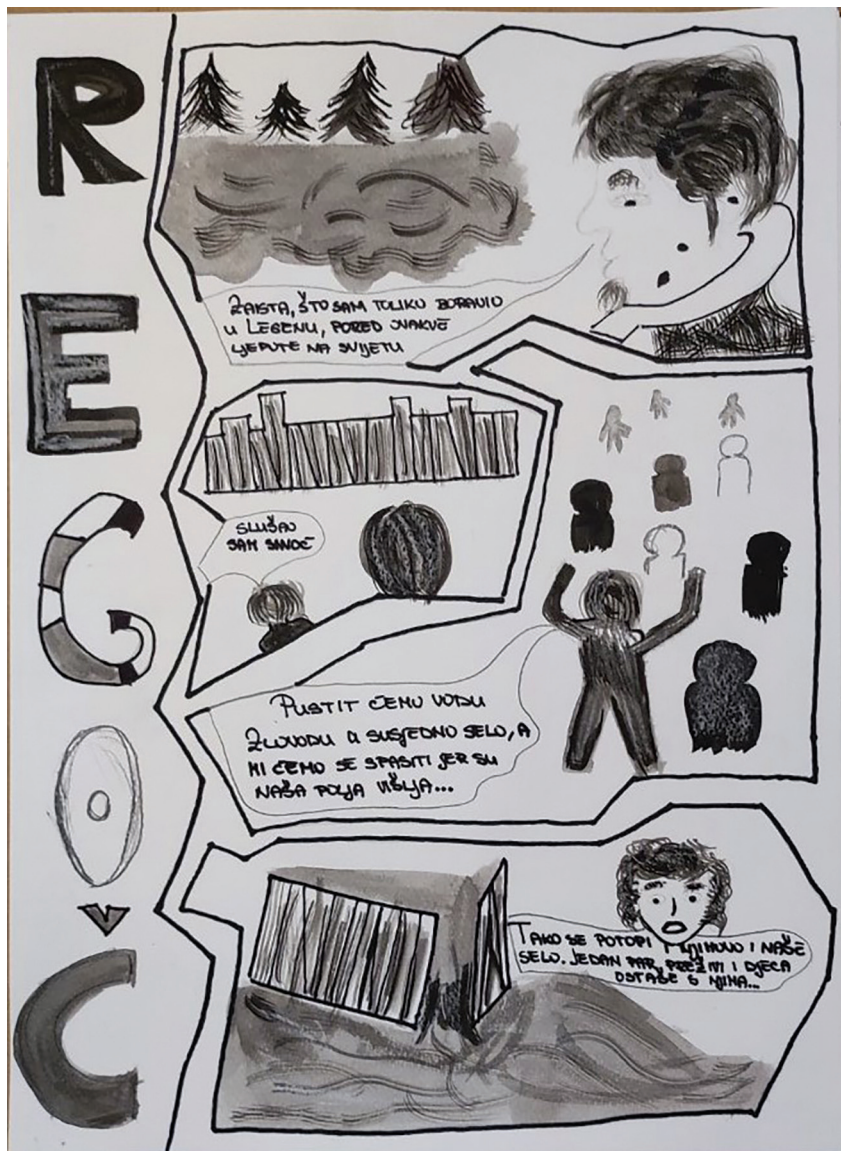 REGOČ
ZAISTA, ŠTO SAM TOLIKO BORAVIO
U LEGENU, PORED OVAKVE
LJEPOTE NA SVIJETU
SLUŠAO
SAM
PUSTIT ĆEMO VODU
ZLOVODU U SUSJEDNO SELO, A
MI ĆEMO SE SPASITI JER SU
NAŠA POLJA VIŠLJA...
TAKO SE POTOPI I NJIHOVO I NAŠE
SELO. JEDAN PAR PREŽIVI I DJECA
OSTAŠE S NJIMA...